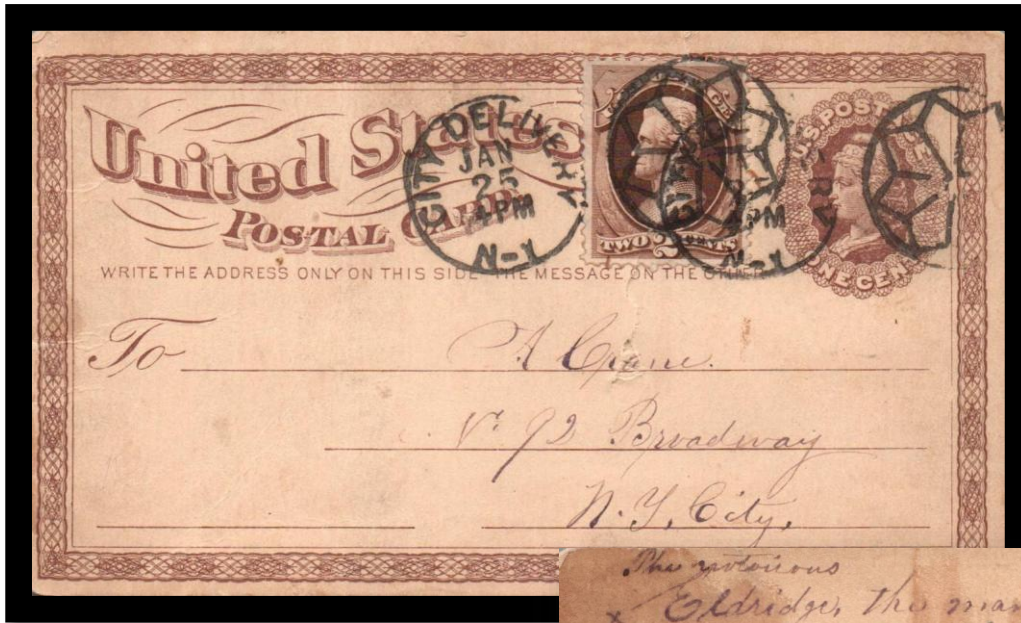 United States
POSTAL CARD
WRITE THE ADDRESS ONLY ON THIS SIDE - THE MESSAGE ON THE OTHER
CITY DELIVERY
JAN
25
4 PM
N-Y
TWO 2 CENTS
4 PM
N-Y
U.S. POSTAGE
ONE CENT
To
A Crane.
No. 92 Broadway
N. Y. City.
The notorious
x Eldridge, the man